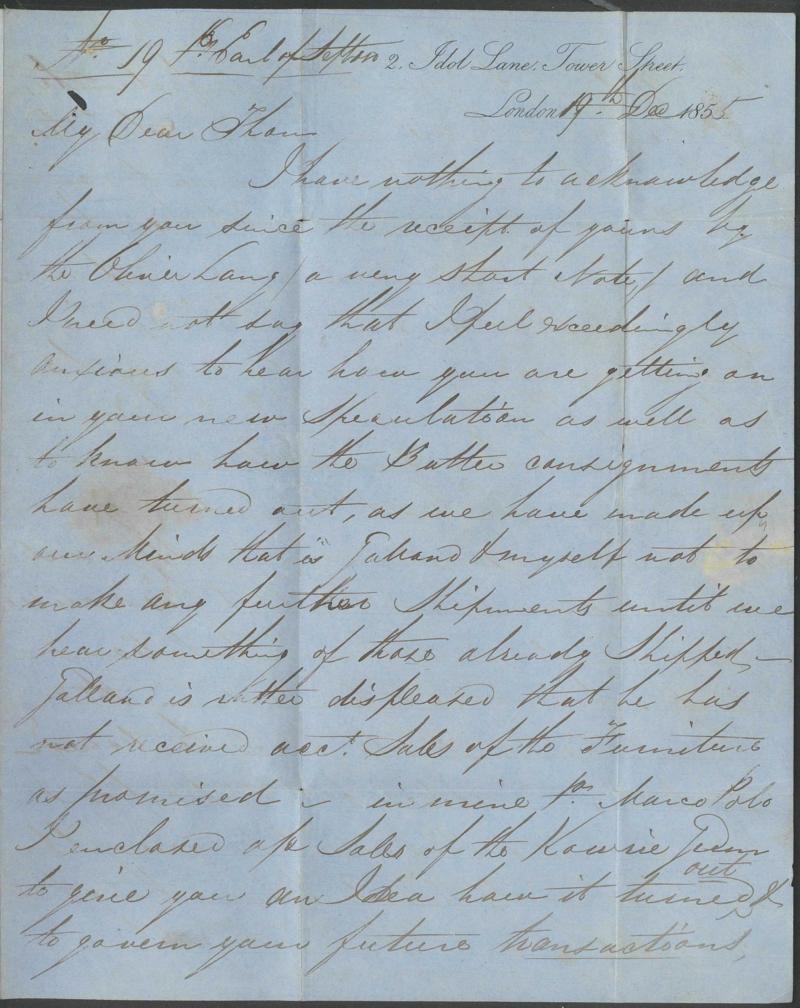 No. 19 pr. Earl of Sefton 2, Idol Lane, Tower Street,
London 19th Dec 1855
My Dear Thom
I have nothing to acknowledge
from you since the receipt of yours by
the Oliver Lang / a very short Note / and
I need not say that I feel exceedingly
anxious to hear how you are getting on
in your new Speculation as well as
to know how the Butter consignments
have turned out, as we have made up
our Minds that is Galland & myself not to
make any further Shipments until we
hear something of those already Shipped,—
Galland is rather displeased that he has
not received acct. Sales of the Furniture
as promised – in mine pr. Marco Polo
I enclosed a/c Sales of the Kowrie Gum
to give you an Idea how it turned out &
to govern your future transactions,